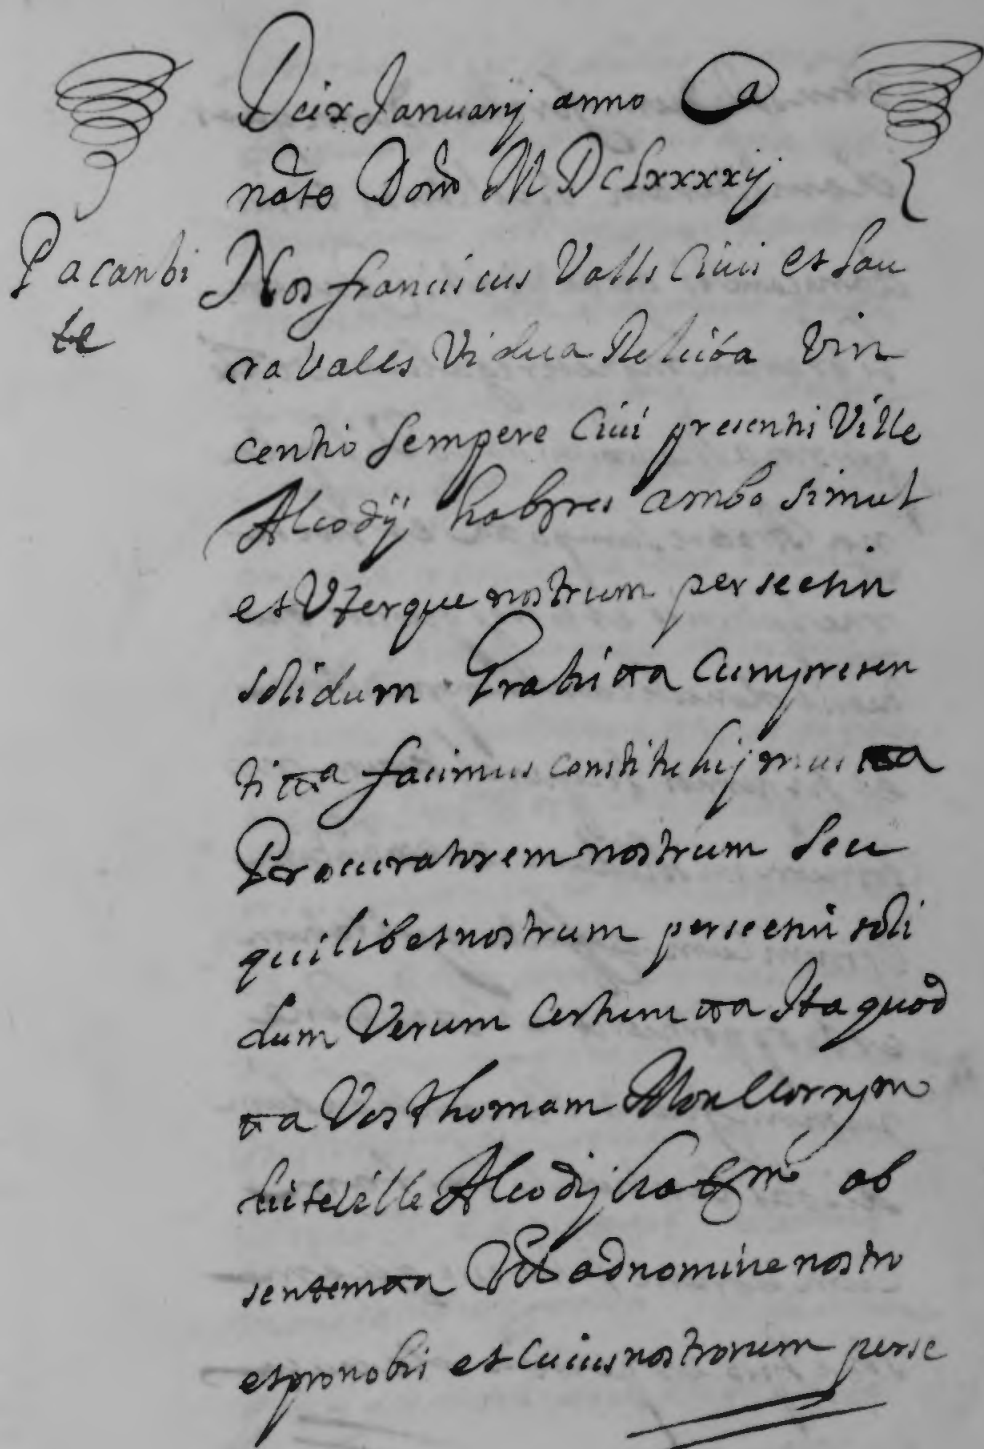 Die ix Januarij anno a
nato Domo MDCLxxxxij
Pacanbi
te
Nos franciscus Valls Ciuis et Lau
ra Valls Vidua Relicta Vin
centio Sempere Ciui presentis Ville
Alcodij habres ambo simul
et Vterque nostrum per se et in
solidum Gratis etta Cum presen
ti etta facimus constituhijmus etta
Procuratorem nostrum Seu
quilibet nostrum per se et in soli
dum Verum Certum etta Ita quod
etta Vos Thomam Monllor
Ville Alcodij habrem ab
sentem etta ad nomine nostro
et pro nobis et Cuius nostrorum per se